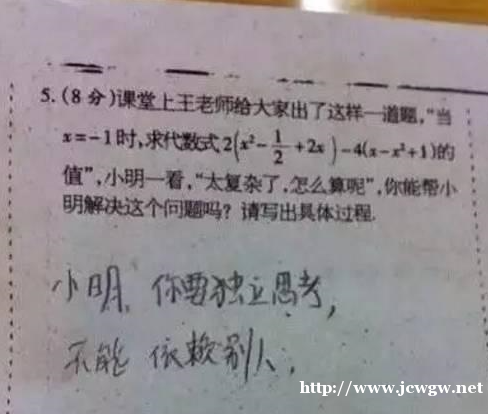 5.(8分)课堂上王老师给大家出了这样一道题,“当
x=-1时,求代数式2(x²-1/2+2x)-4(x-x²+1)的
值”,小明一看,“太复杂了,怎么算呢”,你能帮小
明解决这个问题吗?请写出具体过程.
小明,你要独立思考,
不能依赖别人.
http://www.jcwgw.net